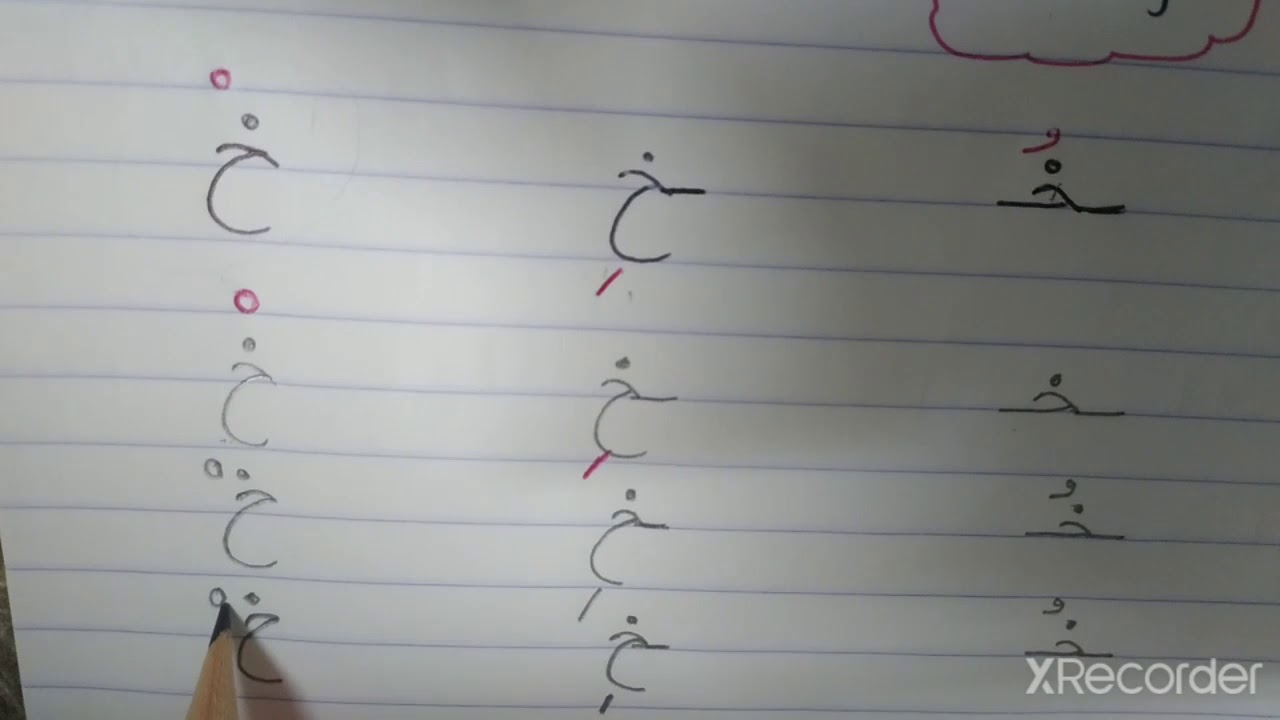 ـخُـ ـخِ خْ
ـخـ ـخِ خْ
ـخُـ ـخِ خْ
ـخُـ ـخِ خْ
XRecorder